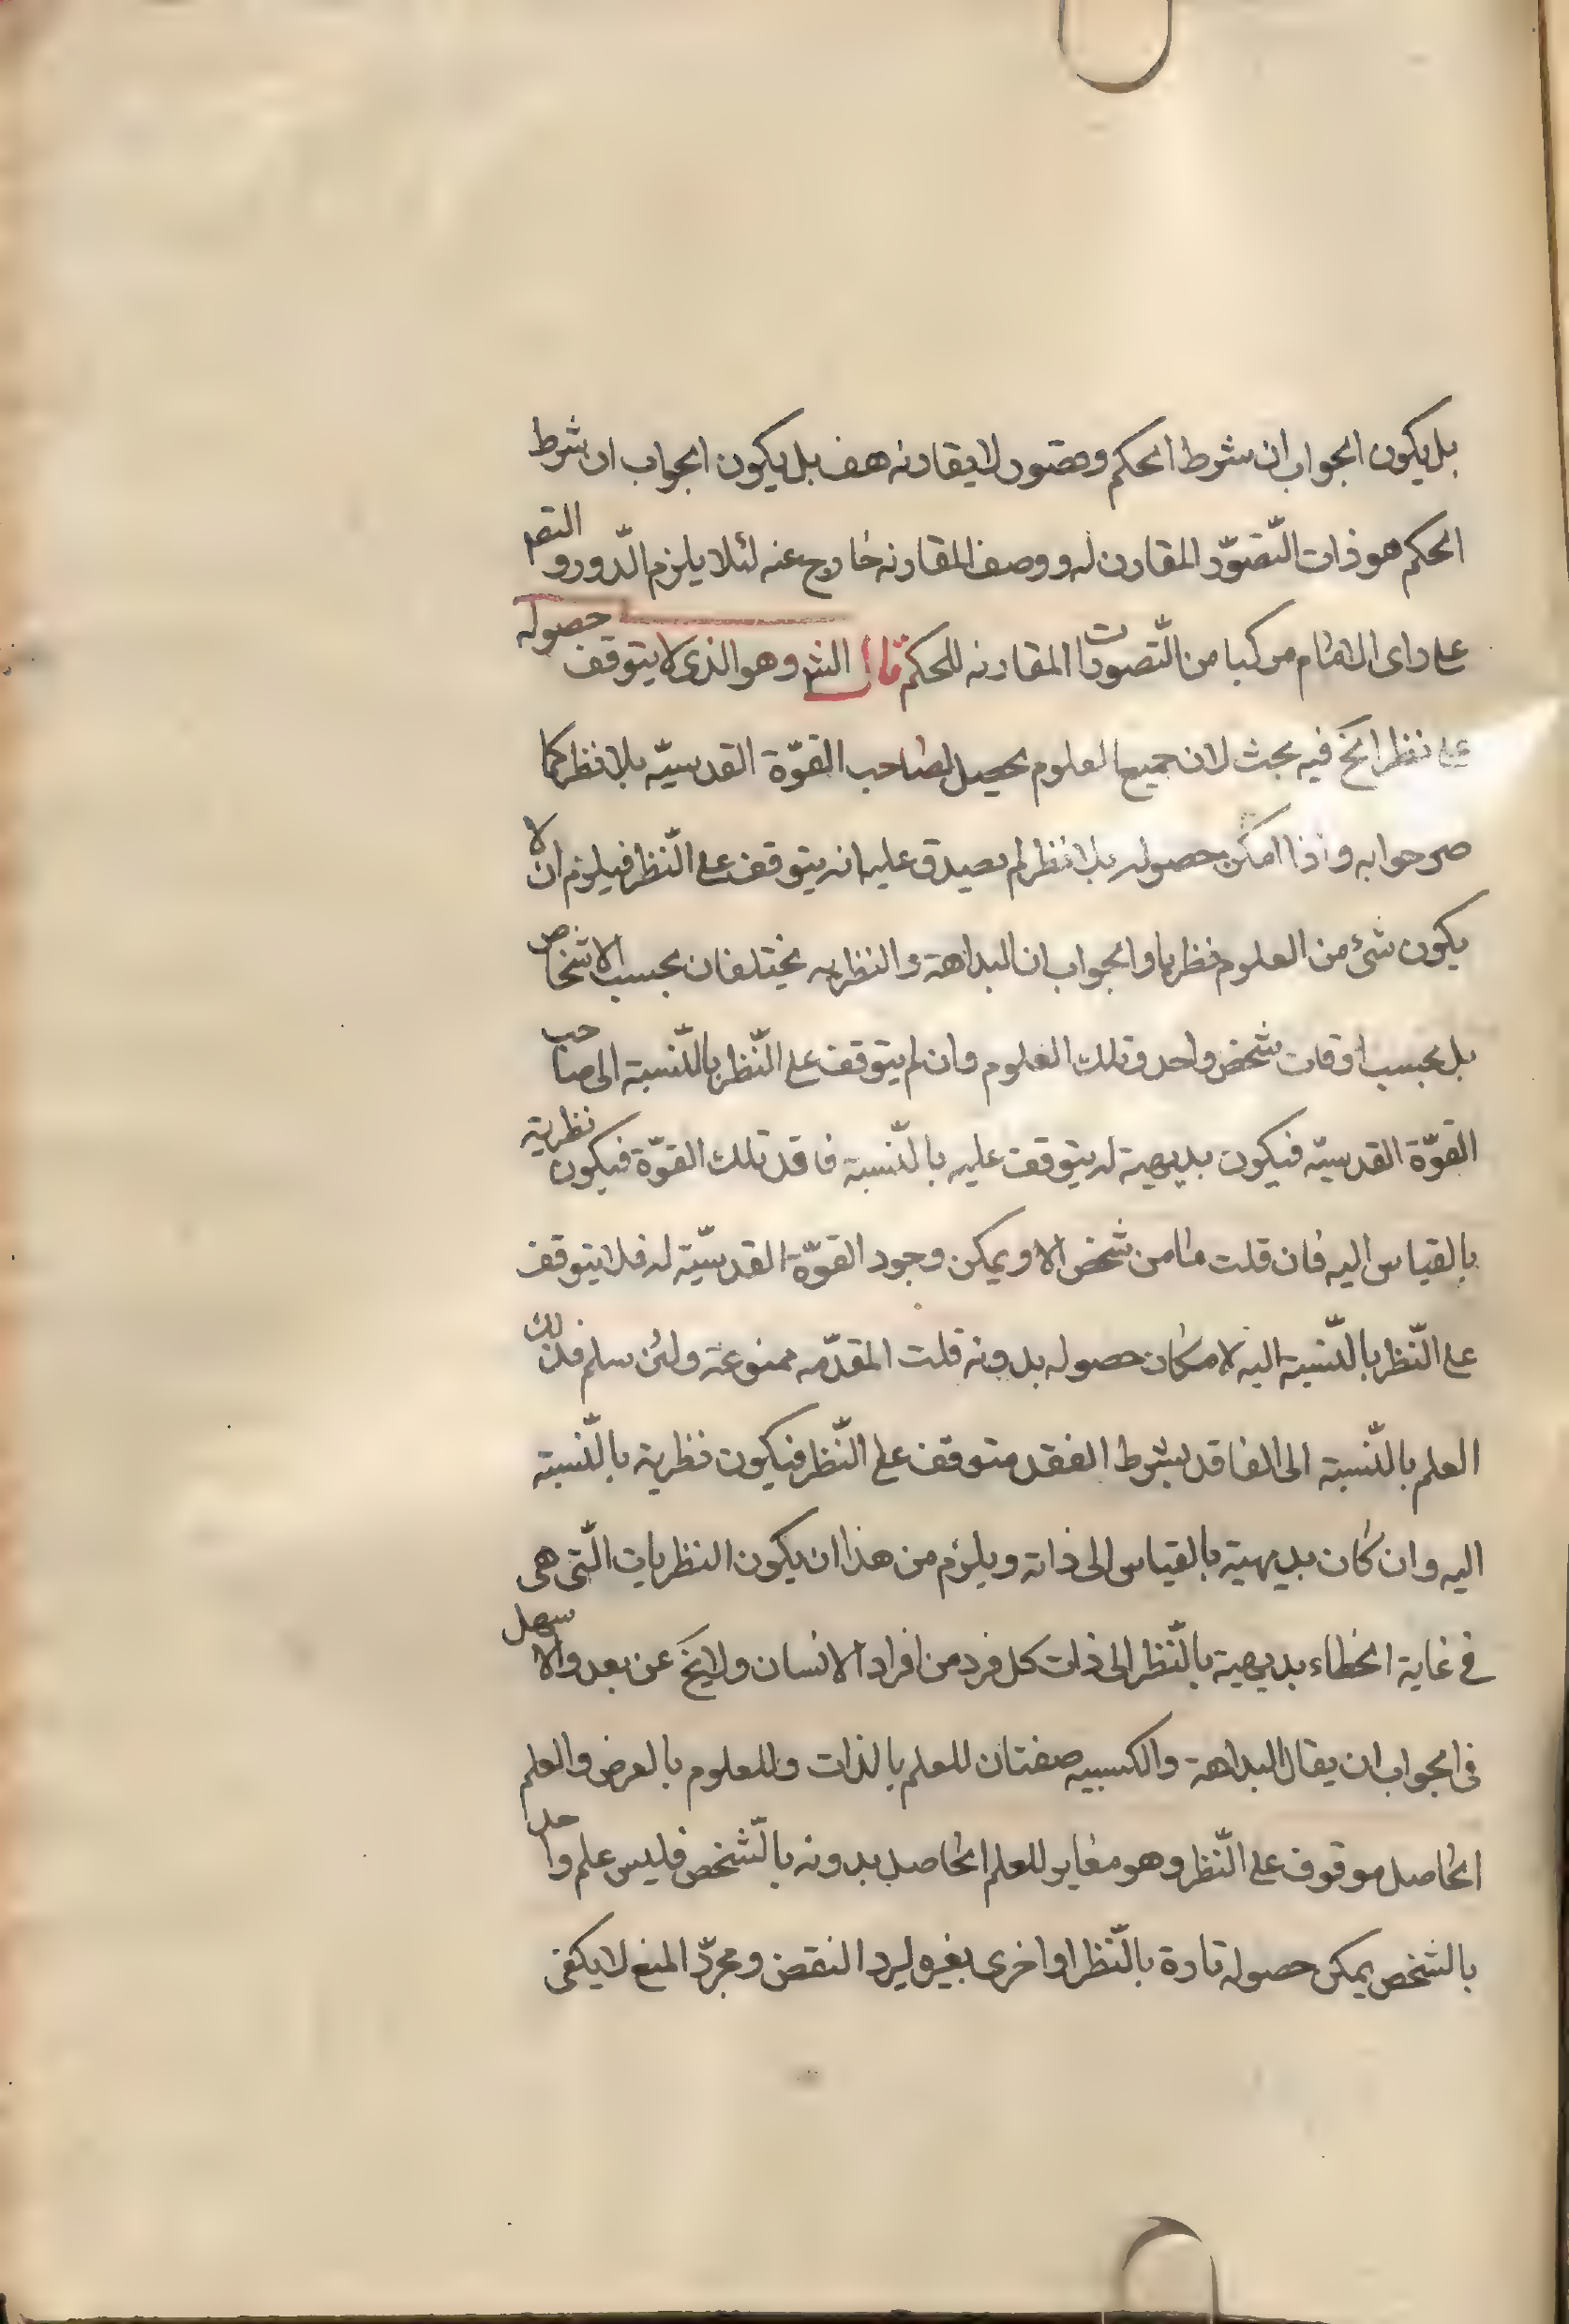 بل يكون الجواب ان شرط الحكم وتصور لا يقارنه هف بل يكون الجواب ان شرط
الحكم هو ذات التّصوّر المقارن له ووصف المقارنه خارج عنه لئلا يلزم الدّور والتصـ
على راى الامام مركبا من التّصورات المقارنه للحكم قال الش وهو الذى لا يتوقف حصوله
على نظر الخ فيه بحث لان جميع العلوم يحصل لصاحب القوّة القدسيّه بلا نظر كما
صرحوا به واذا امكن حصوله بلا نظر لم يصدق عليه انه يتوقف على النّظر فيلزم ان لا
يكون شئ من العلوم نظريا والجواب ان البداهة والنظريه يختلفان بحسب الاشخاص
بل بحسب اوقات شخص واحد وتلك العلوم وان لم يتوقف على النّظر بالنّسبة الى صاحب
القوّة القدسيّه فيكون بديهية له يتوقف عليه بالنّسبة فاقد تلك القوّة فيكون نظرية
بالقياس اليه فان قلت ما من شخص الا ويمكن وجود القوّة القدسيّة له فلا يتوقف
على النّظر بالنّسبة اليه لامكان حصوله بدونه قلت المقدّمه ممنوعة ولئن سلم فذلك
العلم بالنّسبة الى الفاقد بشرط الفقد متوقف على النّظر فيكون نظرية بالنّسبة
اليه وان كان بديهية بالقياس الى ذاته ويلزم من هذا ان يكون النظريات الّتى هى
فى غاية الخطاء بديهية بالنّظر الى ذات كل فرد من افراد الانسان ولا يخ عن بعد والاسهل
فى الجواب ان يقال البداهة والكسبيه صفتان للعلم بالذات وللمعلوم بالعرض والعلم
الحاصل موقوف على النّظر وهو مغاير للعلم الحاصل بدونه بالشّخص فليس علم واحد
بالشخص يمكن حصوله تارة بالنّظر او اخرى بغيره ليرد النقض ومجرّد المنع لا يكفى